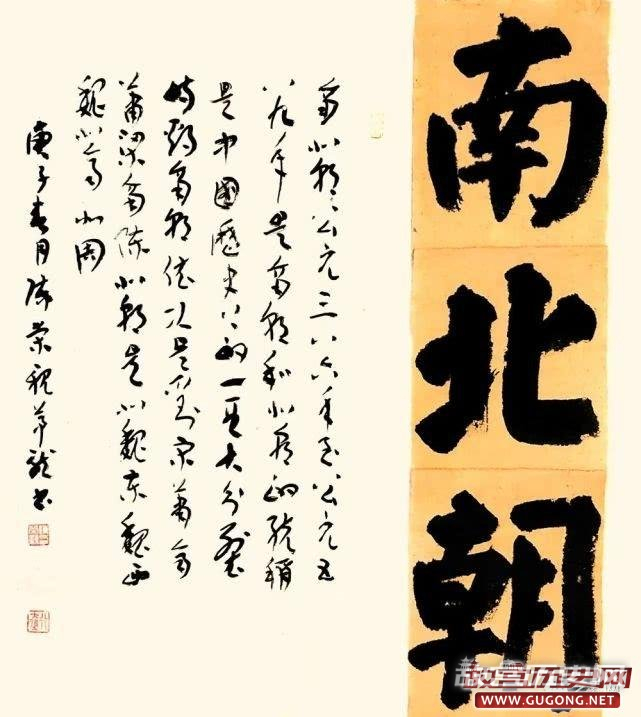 南北朝
南北朝公元三八六年至公元五
八九年是南朝和北朝的统稱
是中國歷史上的一段大分裂
时期南朝依次是刘宋萧齐
萧梁南陈北朝是北魏东魏西
魏北齐北周
庚子春月
故宫历史网
WWW.GUGONG.NET